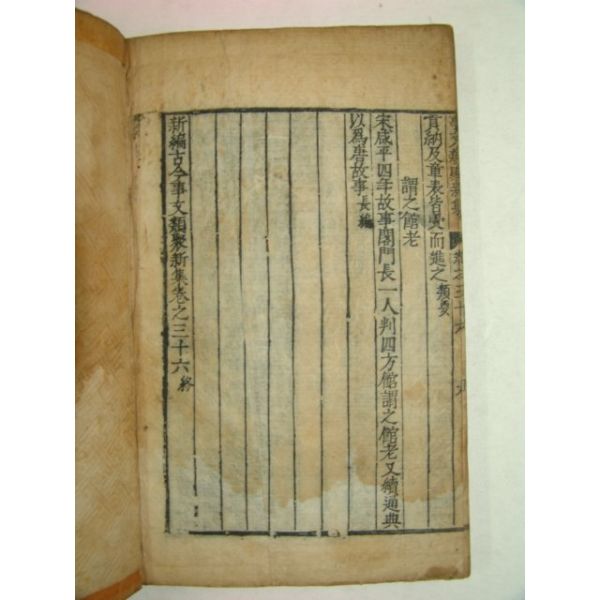 貢納及章表皆受而進之類要
謂之館老
宋咸平四年故事閣門長一人判四方館謂之館老又續通典
以為唐故事長編
新編古今事文類聚新集卷之三十六終